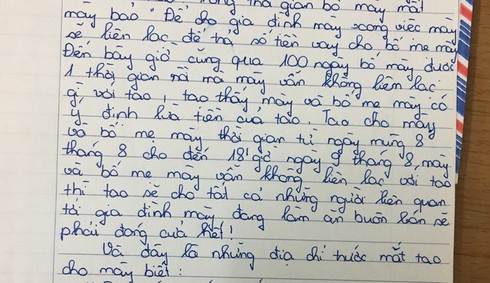 trong thời gian bố mày mất
mày bảo. Để cho gia đình mày xong việc mày
sẽ liên lạc để trả số tiền vay cho bố mẹ mày
Đến bây giờ cũng qua 100 ngày bố mày được
1 thời gian rồi mà mày vẫn không liên lạc
gì với tao, tao thấy mày và bố mẹ mày có
ý định lừa tiền của tao. Tao cho mày
và bố mẹ mày thời gian từ ngày mùng 8
tháng 8 cho đến 18 giờ ngày 9 tháng 8, mày
và bố mẹ mày vẫn không liên lạc với tao
thì tao sẽ cho tất cả những người liên quan
tới gia đình mày đang làm ăn buôn bán sẽ
phải đóng cửa hết!
Và đây là những địa chỉ trước mắt tao
cho mày biết: